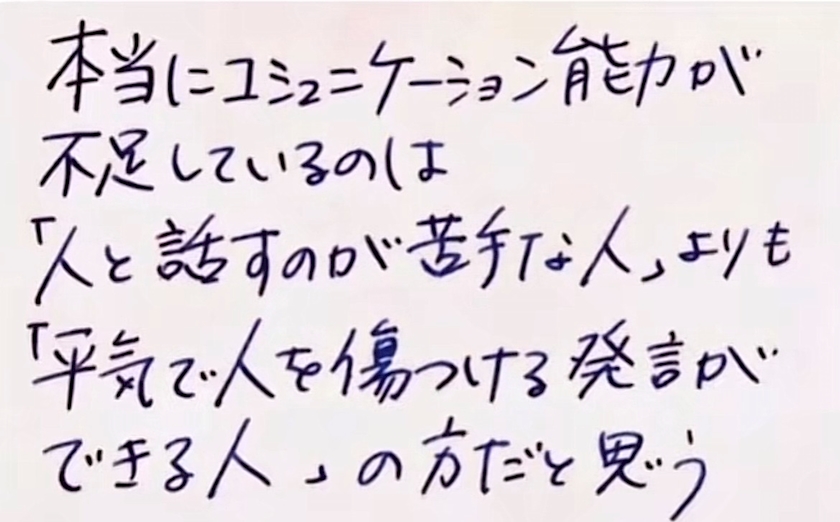 本当にコミュニケーション能力が
不足しているのは
「人と話すのが苦手な人」よりも
「平気で人を傷つける発言が
できる人」の方だと思う